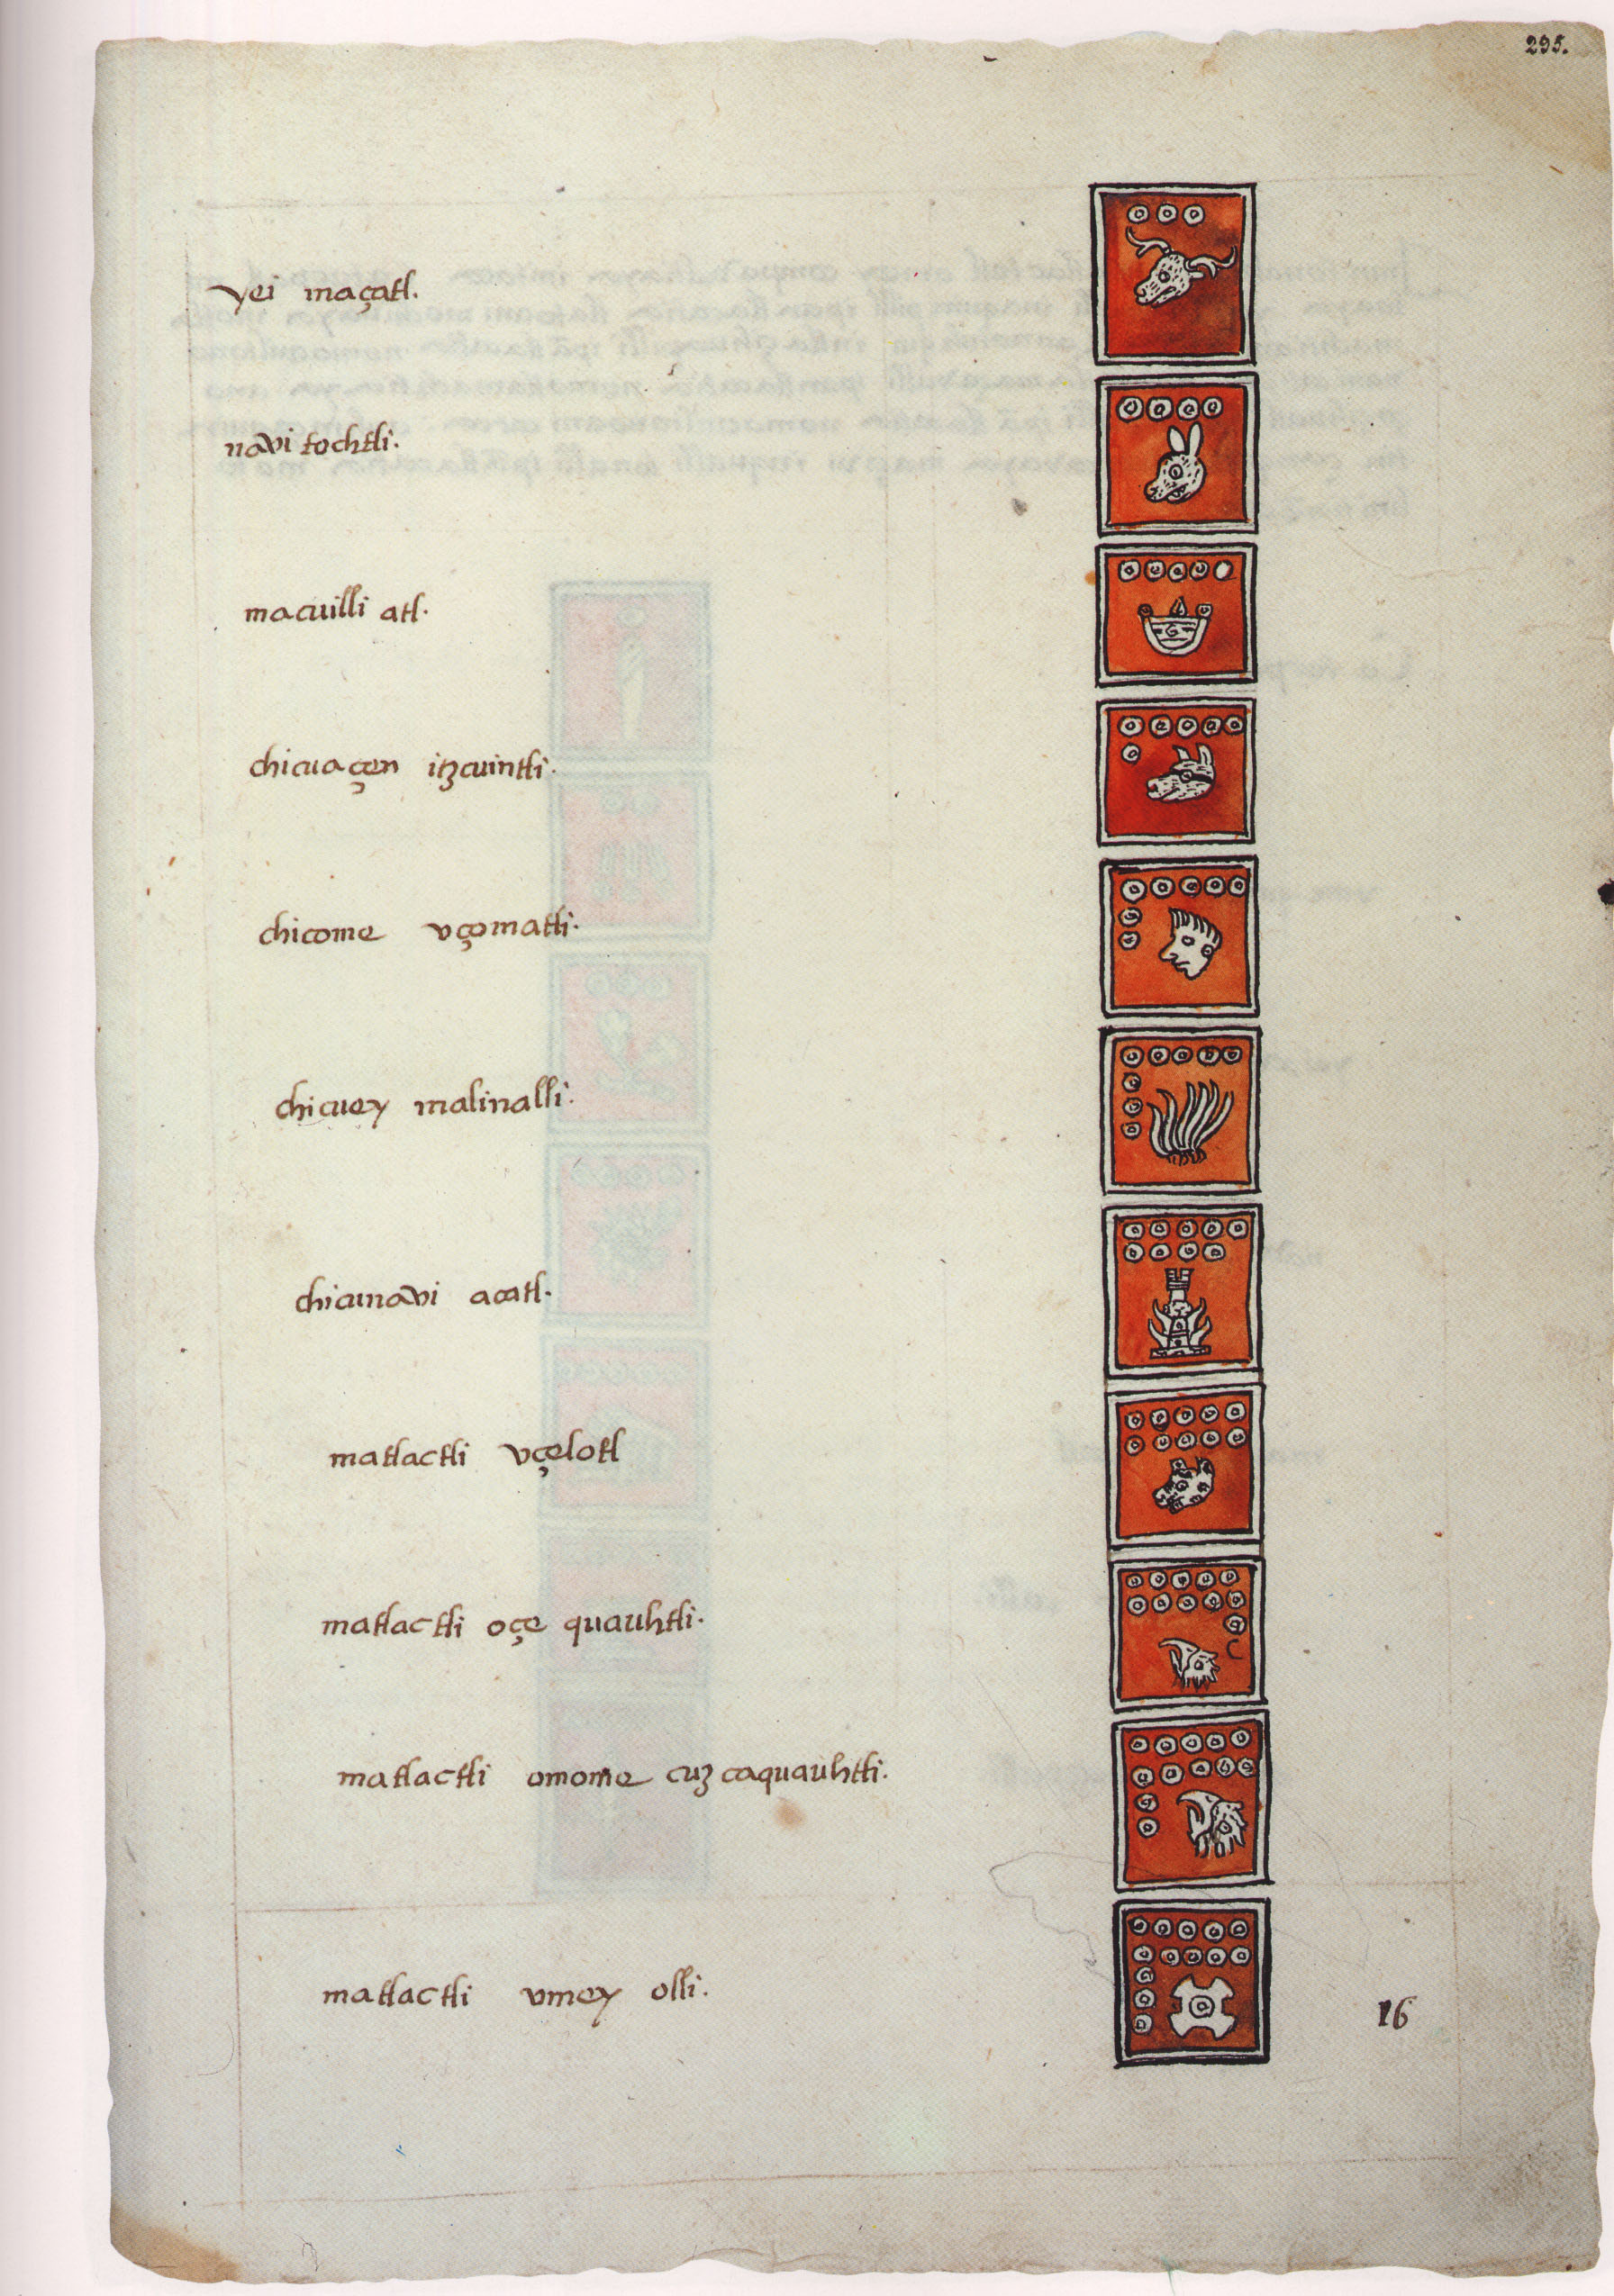 295.
yei maçatl.
navi tochtli.
macuilli atl.
chicuaçen itzcuintli.
chicome vçomatli.
chicuey malinalli.
chicunavi acatl.
matlactli vçelotl
matlactli oçe quauhtli.
matlactli omome cuzcaquauhtli.
matlactli vmey olli.
16